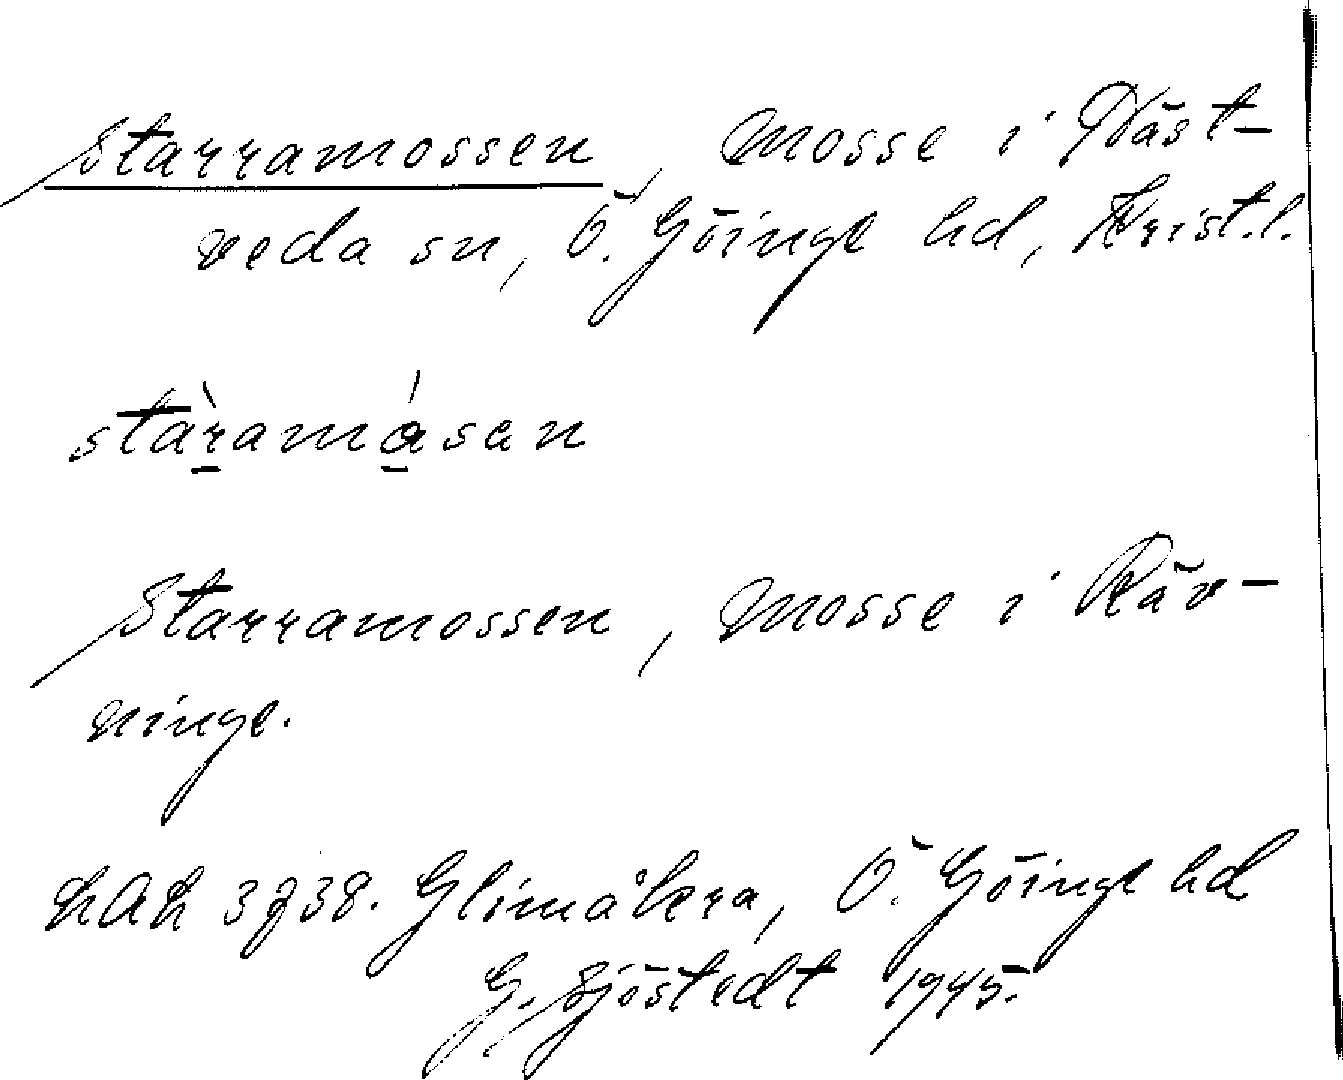 Starramossen, Mosse i Näst-
veda sn, Ö. Göinge hd, Krist.l.
stàramásan
Starramossen, Mosse i Räv-
ninge.
LAL 3738. Glimåkra, Ö. Göinge hd
G. Sjöstedt 1945.